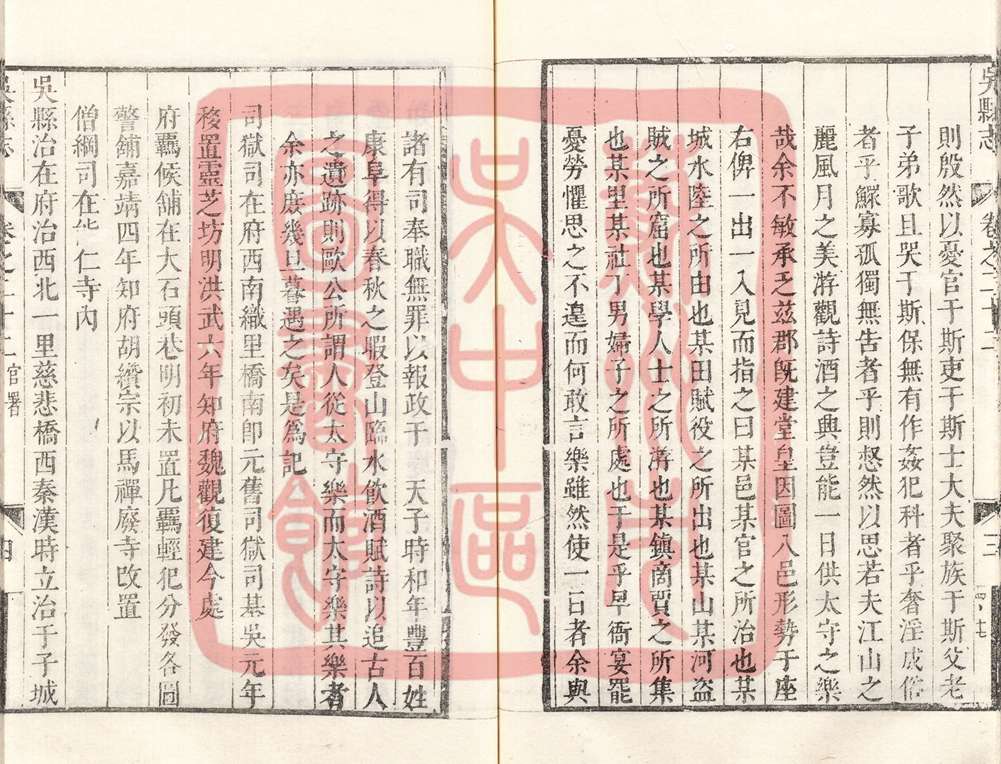 吳縣志 卷之二十二 三
則殷然以憂官于斯吏于斯士大夫聚族于斯父老
子弟歌且哭于斯保無有作姦犯科者乎奢淫成俗
者乎鰥寡孤獨無告者乎則惄然以思若夫江山之
麗風月之美游觀詩酒之興豈能一日供太守之樂
哉余不敏承乏茲郡旣建堂皇因圖八邑形勢于座
右俾一出一入見而指之曰某邑某官之所治也某
城水陸之所由也某田賦役之所出也某山某河盜
賊之所窟也某學人士之所游也某鎮商賈之所集
也某里某社丁男婦子之所處也于是乎早衙宴罷
憂勞懼思之不遑而何敢言樂雖然使一日者余與
諸有司奉職無罪以報政于 天子時和年豐百姓
康阜得以春秋之暇登山臨水飲酒賦詩以追古人
之遺跡則歐公所謂人從太守樂而太守樂其樂者
余亦庶幾旦暮遇之矣是爲記
司獄司在府西南織里橋南卽元舊司獄司基吳元年
移置靈芝坊明洪武六年知府魏觀復建今處
府羈候舖在大石頭巷明初未置凡羈輕犯分發各圖
警舖嘉靖四年知府胡纘宗以馬禪廢寺改置
僧綱司在能仁寺內
吳縣治在府治西北一里慈悲橋西秦漢時立治于子城
吳縣志 卷之二十二 官署 四
蘇州市
吳中區
圖書館